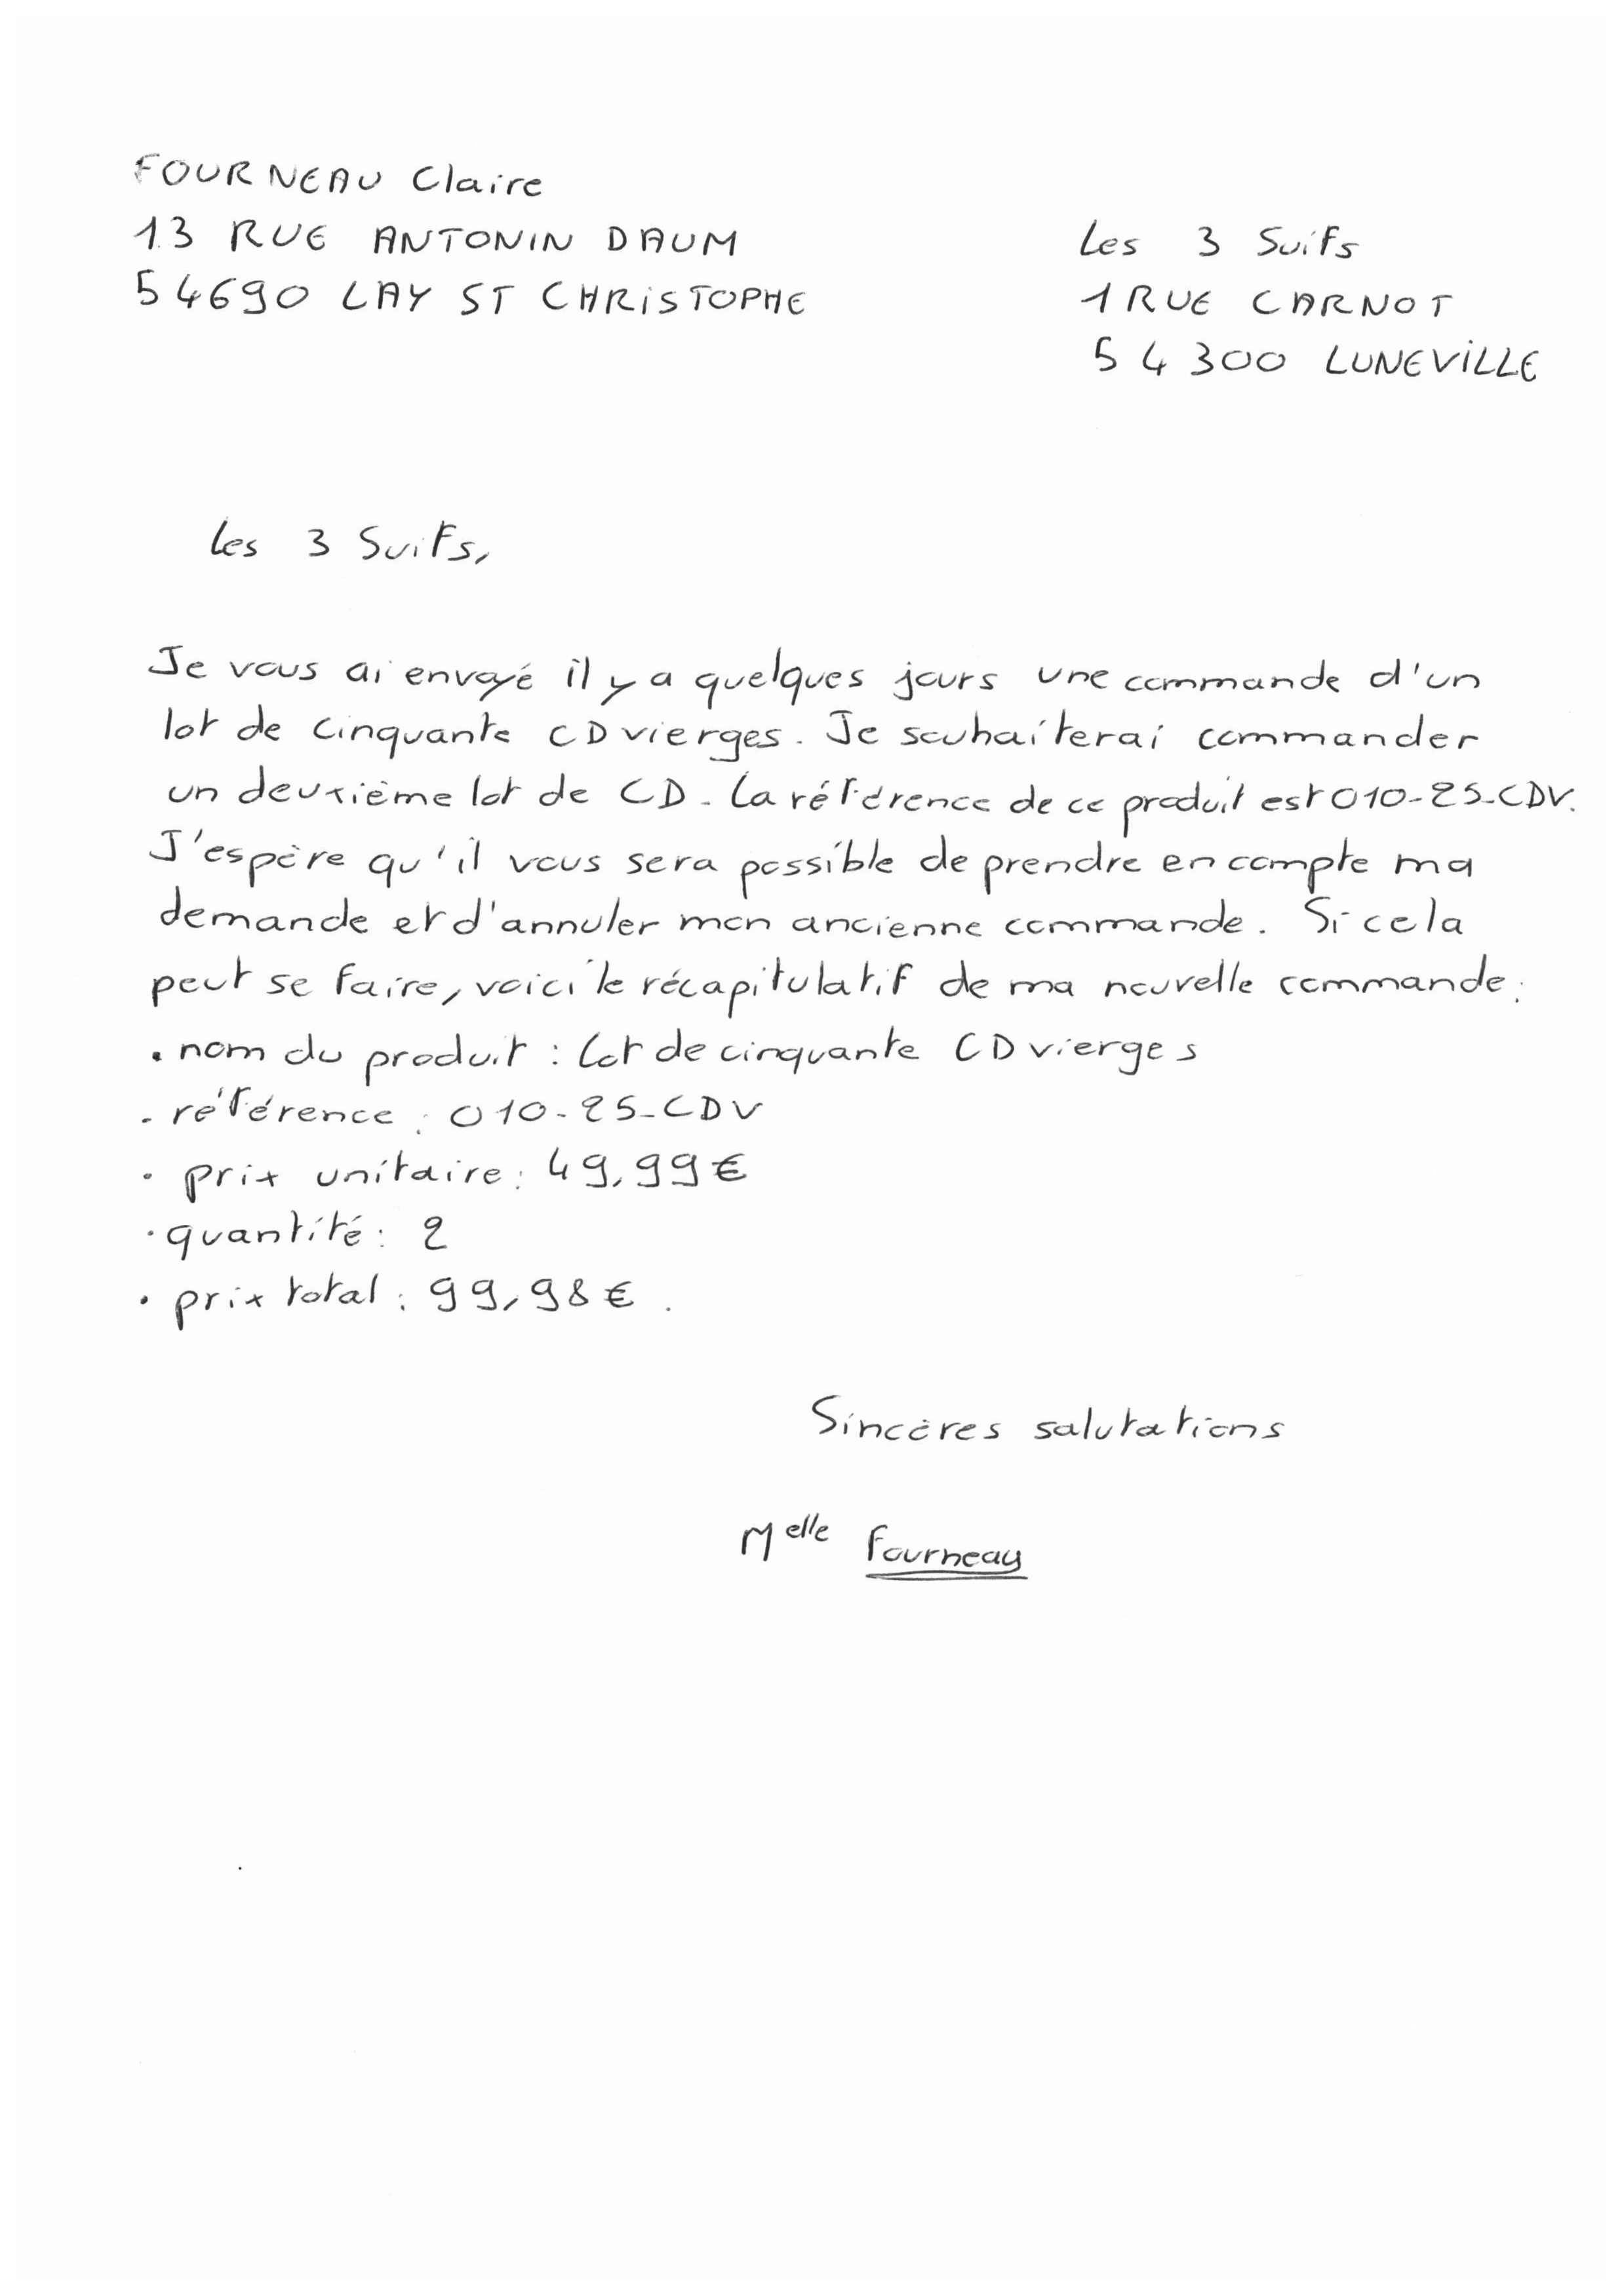 FOURNEAU Claire
13 RUE ANTONIN DAUM
54690 LAY ST CHRISTOPHE
Les 3 Suifs
1 RUE CARNOT
54300 LUNEVILLE
Les 3 Suifs,
Je vous ai envoyé il y a quelques jours une commande d'un
lot de cinquante CD vierges. Je souhaiterai commander
un deuxième lot de CD. La référence de ce produit est 010-25-CDV.
J'espère qu'il vous sera possible de prendre en compte ma
demande et d'annuler mon ancienne commande. Si cela
peut se faire, voici le récapitulatif de ma nouvelle commande:
• nom du produit : Lot de cinquante CD vierges
- référence : 010-25-CDV
• prix unitaire : 49,99€
• quantité : 2
• prix total : 99,98€.
Sincères salutations
Melle Fourneau